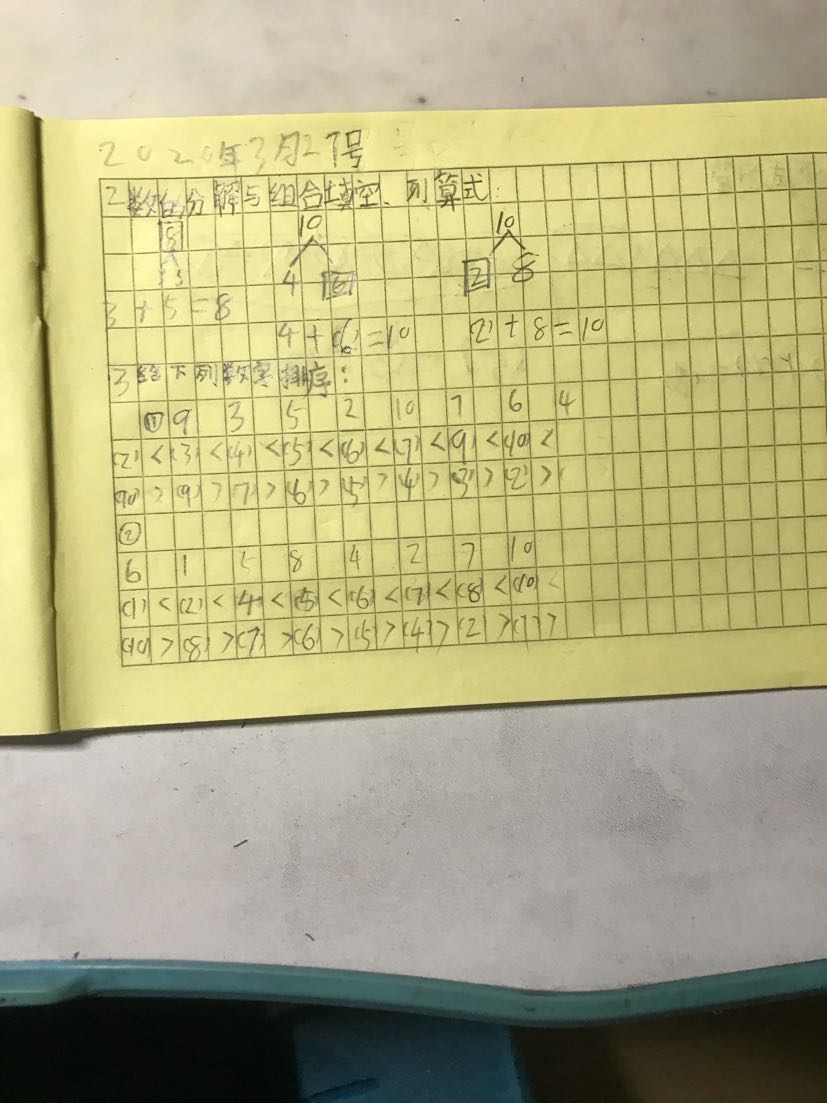 2020年3月27号
2数的分解与组合填空、列算式:
8 10 10
3 5 4 6 2 8
3+5=8
4+(6)=10 (2)+8=10
3给下列数字排序:
① 9 3 5 2 10 7 6 4
(2)<(3)<(4)<(5)<(6)<(7)<(9)<(10)<
(10)>(9)>(7)>(6)>(5)>(4)>(3)>(2)>(
②
6 1 5 8 4 2 7 10
(1)<(2)<(4)<(5)<(6)<(7)<(8)<(10)<
(10)>(8)>(7)>(6)>(5)>(4)>(2)>(1)>